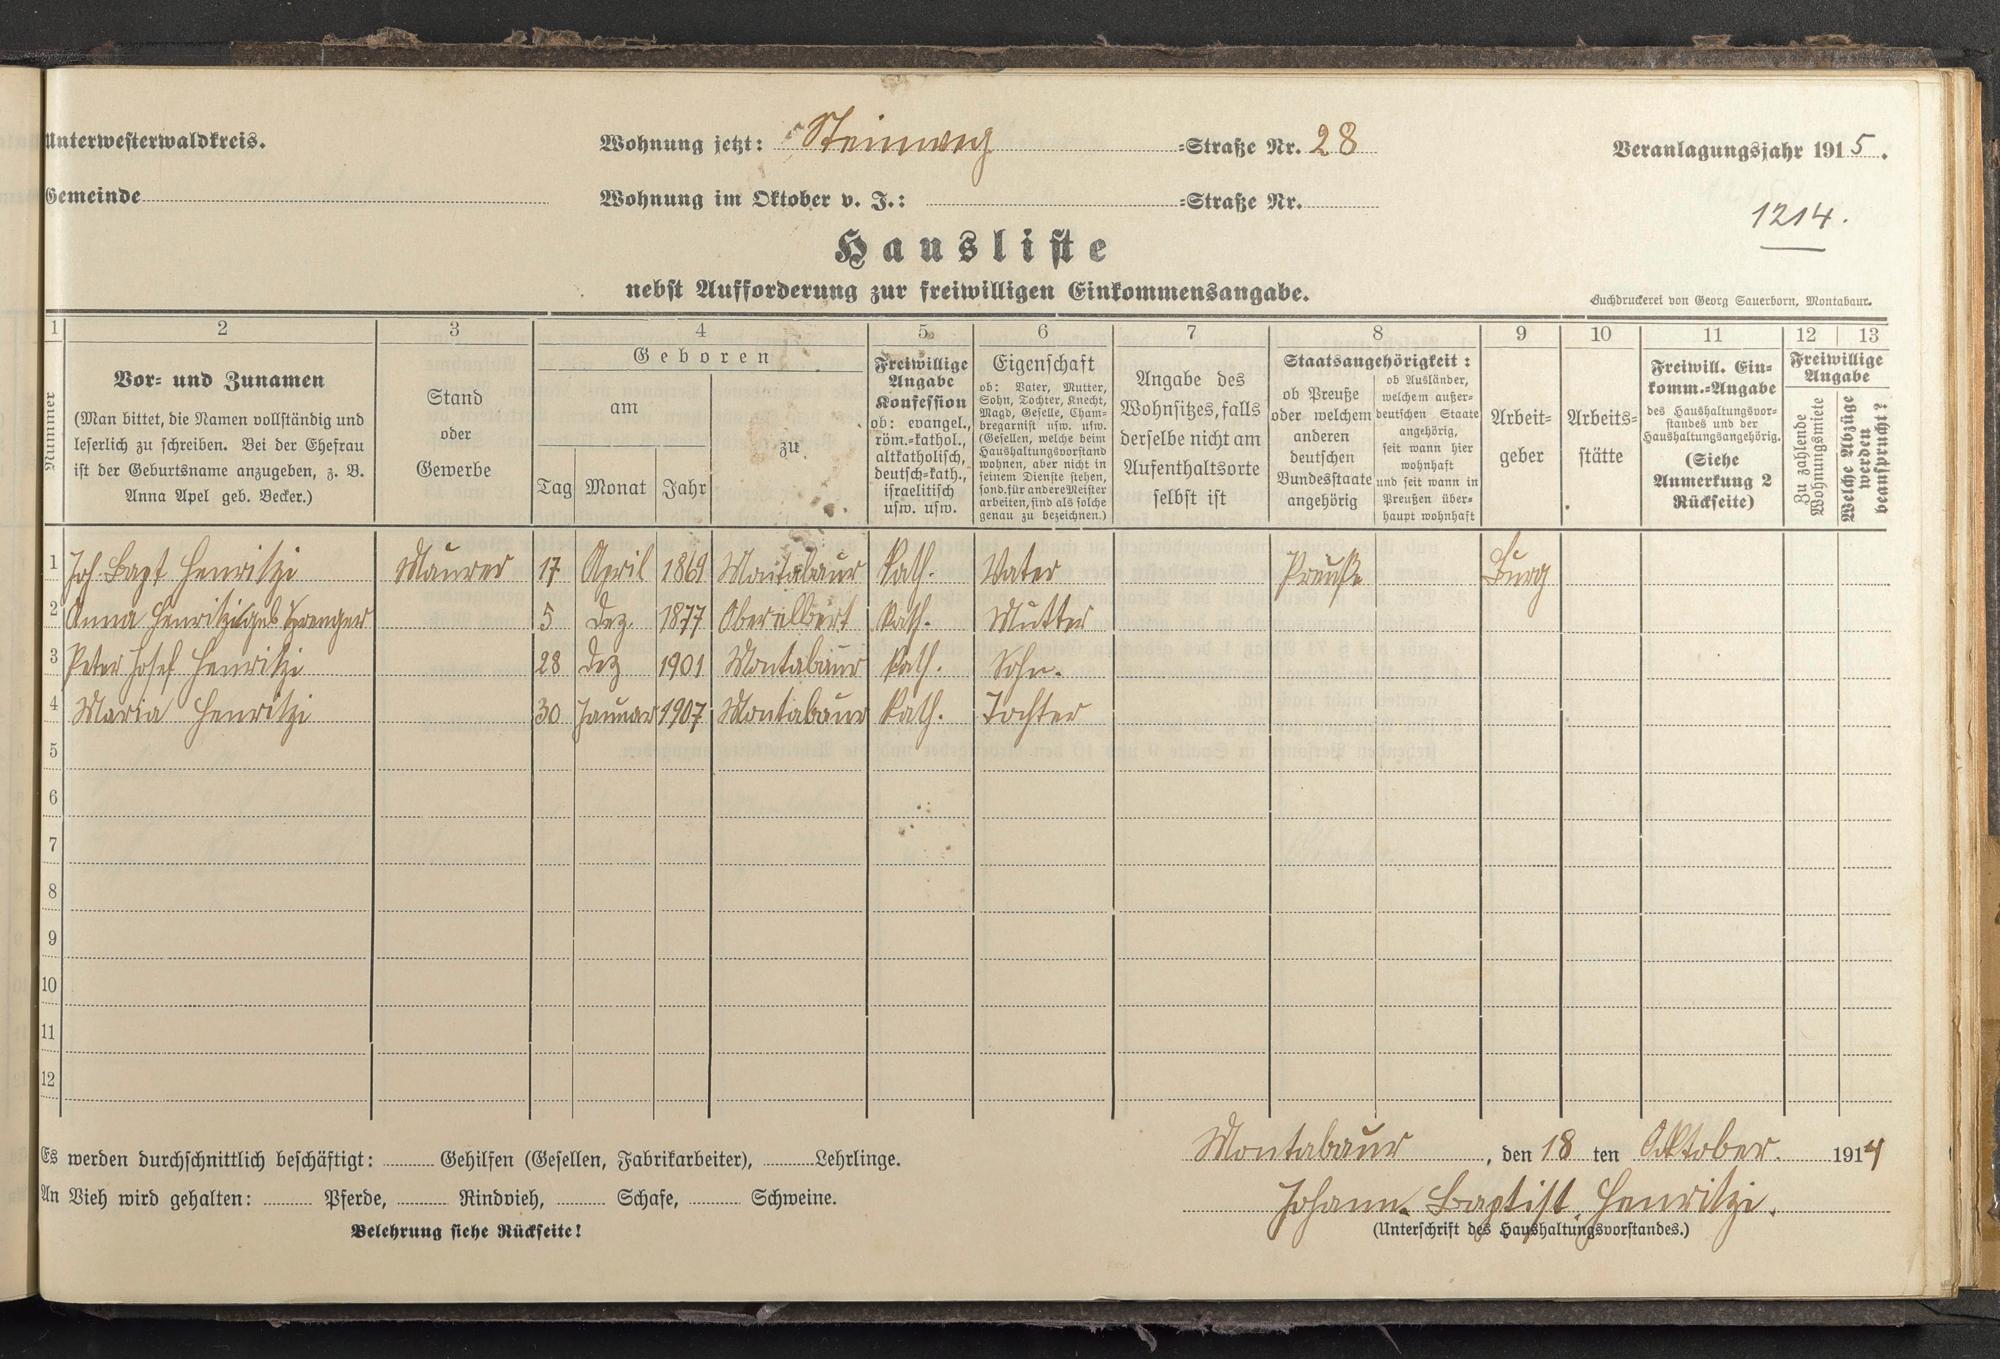 Unterwesterwaldkreis.
Wohnung jetzt: Steinweg =Straße Nr. 28
Veranlagungsjahr 1915.
Gemeinde
Wohnung im Oktober v. J.: =Straße Nr.
1214.
Hausliste
nebst Aufforderung zur freiwilligen Einkommensangabe.
Buchdruckerei von Georg Sauerborn, Montabaur.
1 2 3 4 5 6 7 8 9 10 11 12 13
Nummer
Vor- und Zunamen
(Man bittet, die Namen vollständig und
leserlich zu schreiben. Bei der Ehefrau
ist der Geburtsname anzugeben, z. B.
Anna Apel geb. Becker.)
Stand
oder
Gewerbe
Geboren
am
Tag Monat Jahr
zu
Freiwillige
Angabe
Konfession
ob: evangel.,
röm.=kathol.,
altkatholisch,
deutsch=kath.,
israelitisch
usw. usw.
Eigenschaft
ob: Vater, Mutter,
Sohn, Tochter, Knecht,
Magd, Geselle, Cham-
bregarnist usw. usw.
(Gesellen, welche beim
Haushaltungsvorstand
wohnen, aber nicht in
seinem Dienste stehen,
sond. für andere Meister
arbeiten, sind als solche
genau zu bezeichnen.)
Angabe des
Wohnsitzes, falls
derselbe nicht am
Aufenthaltsorte
selbst ist
Staatsangehörigkeit:
ob Preuße
oder welchem
anderen
deutschen
Bundesstaate
angehörig
ob Ausländer,
welchem außer-
deutschen Staate
angehörig,
seit wann hier
wohnhaft
und seit wann in
Preußen über-
haupt wohnhaft
Arbeit-
geber
Arbeits-
stätte
Freiwill. Ein-
komm.=Angabe
des Haushaltungsvor-
standes und der
Haushaltungsangehörig.
(Siehe
Anmerkung 2
Rückseite)
Freiwillige
Angabe
Zu zahlende
Wohnungsmiete
Welche Abzüge
werden
beansprucht?
1 Joh. Bapt Henritzi Maurer 17 April 1869 Montabaur Kath. Vater Preuße Burg
2 Anna Henritzi geb Sprenger 5 Dez. 1877 Oberelbert Kath. Mutter
3 Peter Josef Henritzi 28 Dez 1901 Montabaur Kath. Sohn.
4 Maria Henritzi 30 Januar 1907 Montabaur Kath. Tochter
5
6
7
8
9
10
11
12
Es werden durchschnittlich beschäftigt: Gehilfen (Gesellen, Fabrikarbeiter), Lehrlinge.
Montabaur, den 18 ten Oktober. 1914
An Vieh wird gehalten: Pferde, Rindvieh, Schafe, Schweine.
Johann. Baptist. Henritzi.
Belehrung siehe Rückseite!
(Unterschrift des Haushaltungsvorstandes.)